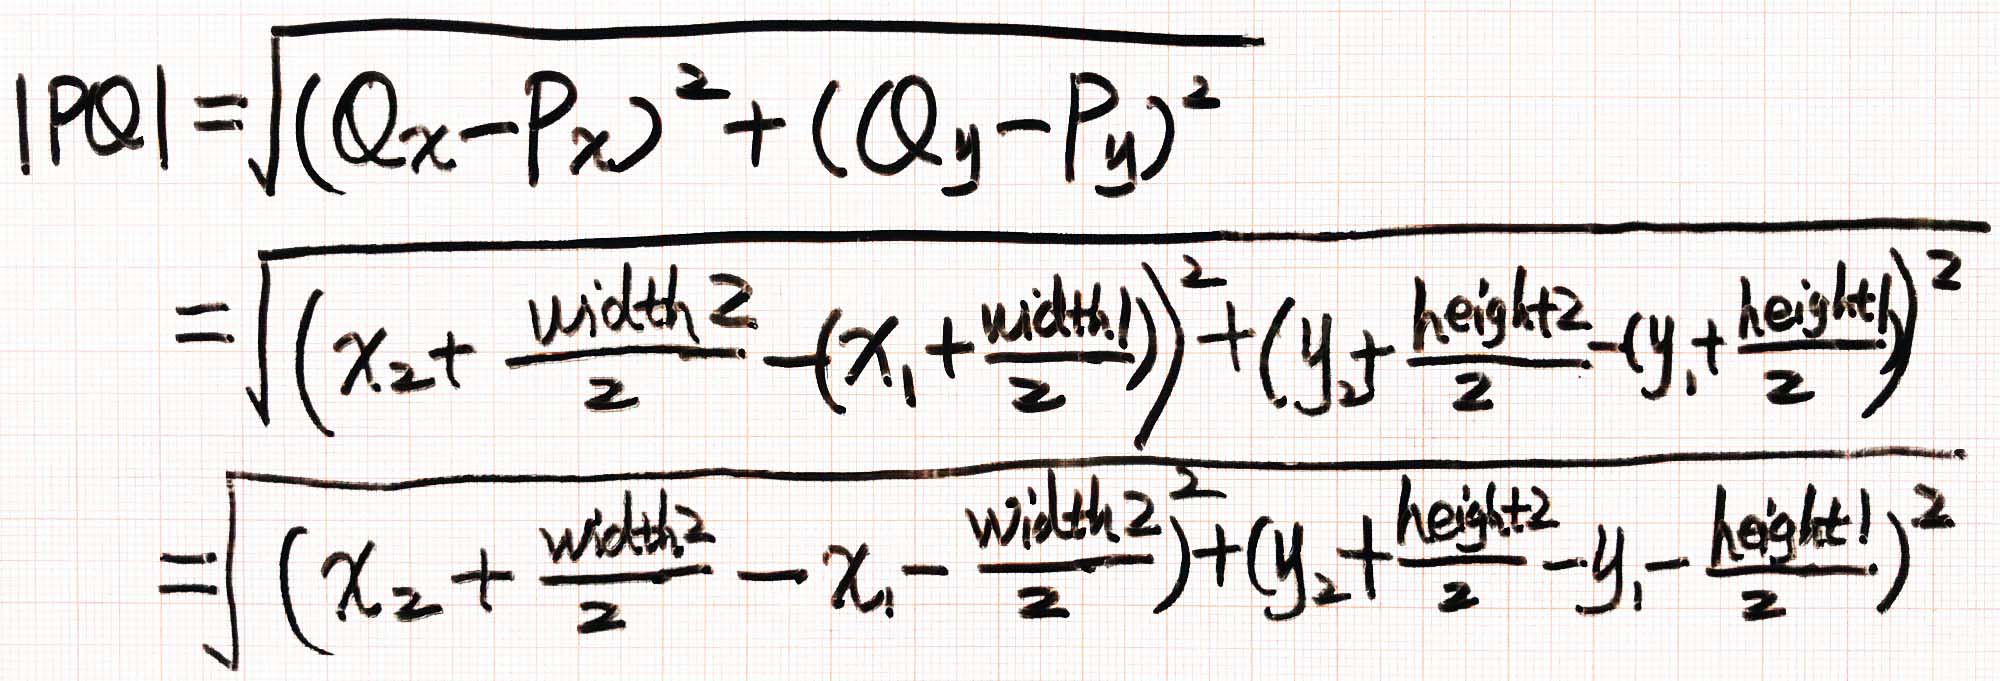 |PQ| = √((Qx − Px)² + (Qy − Py)²)
= √((x₂ + width2/2 − (x₁ + width1/2))² + (y₂ + height2/2 − (y₁ + height1/2))²
= √((x₂ + width2/2 − x₁ − width2/2)² + (y₂ + height2/2 − y₁ − height1/2)²)